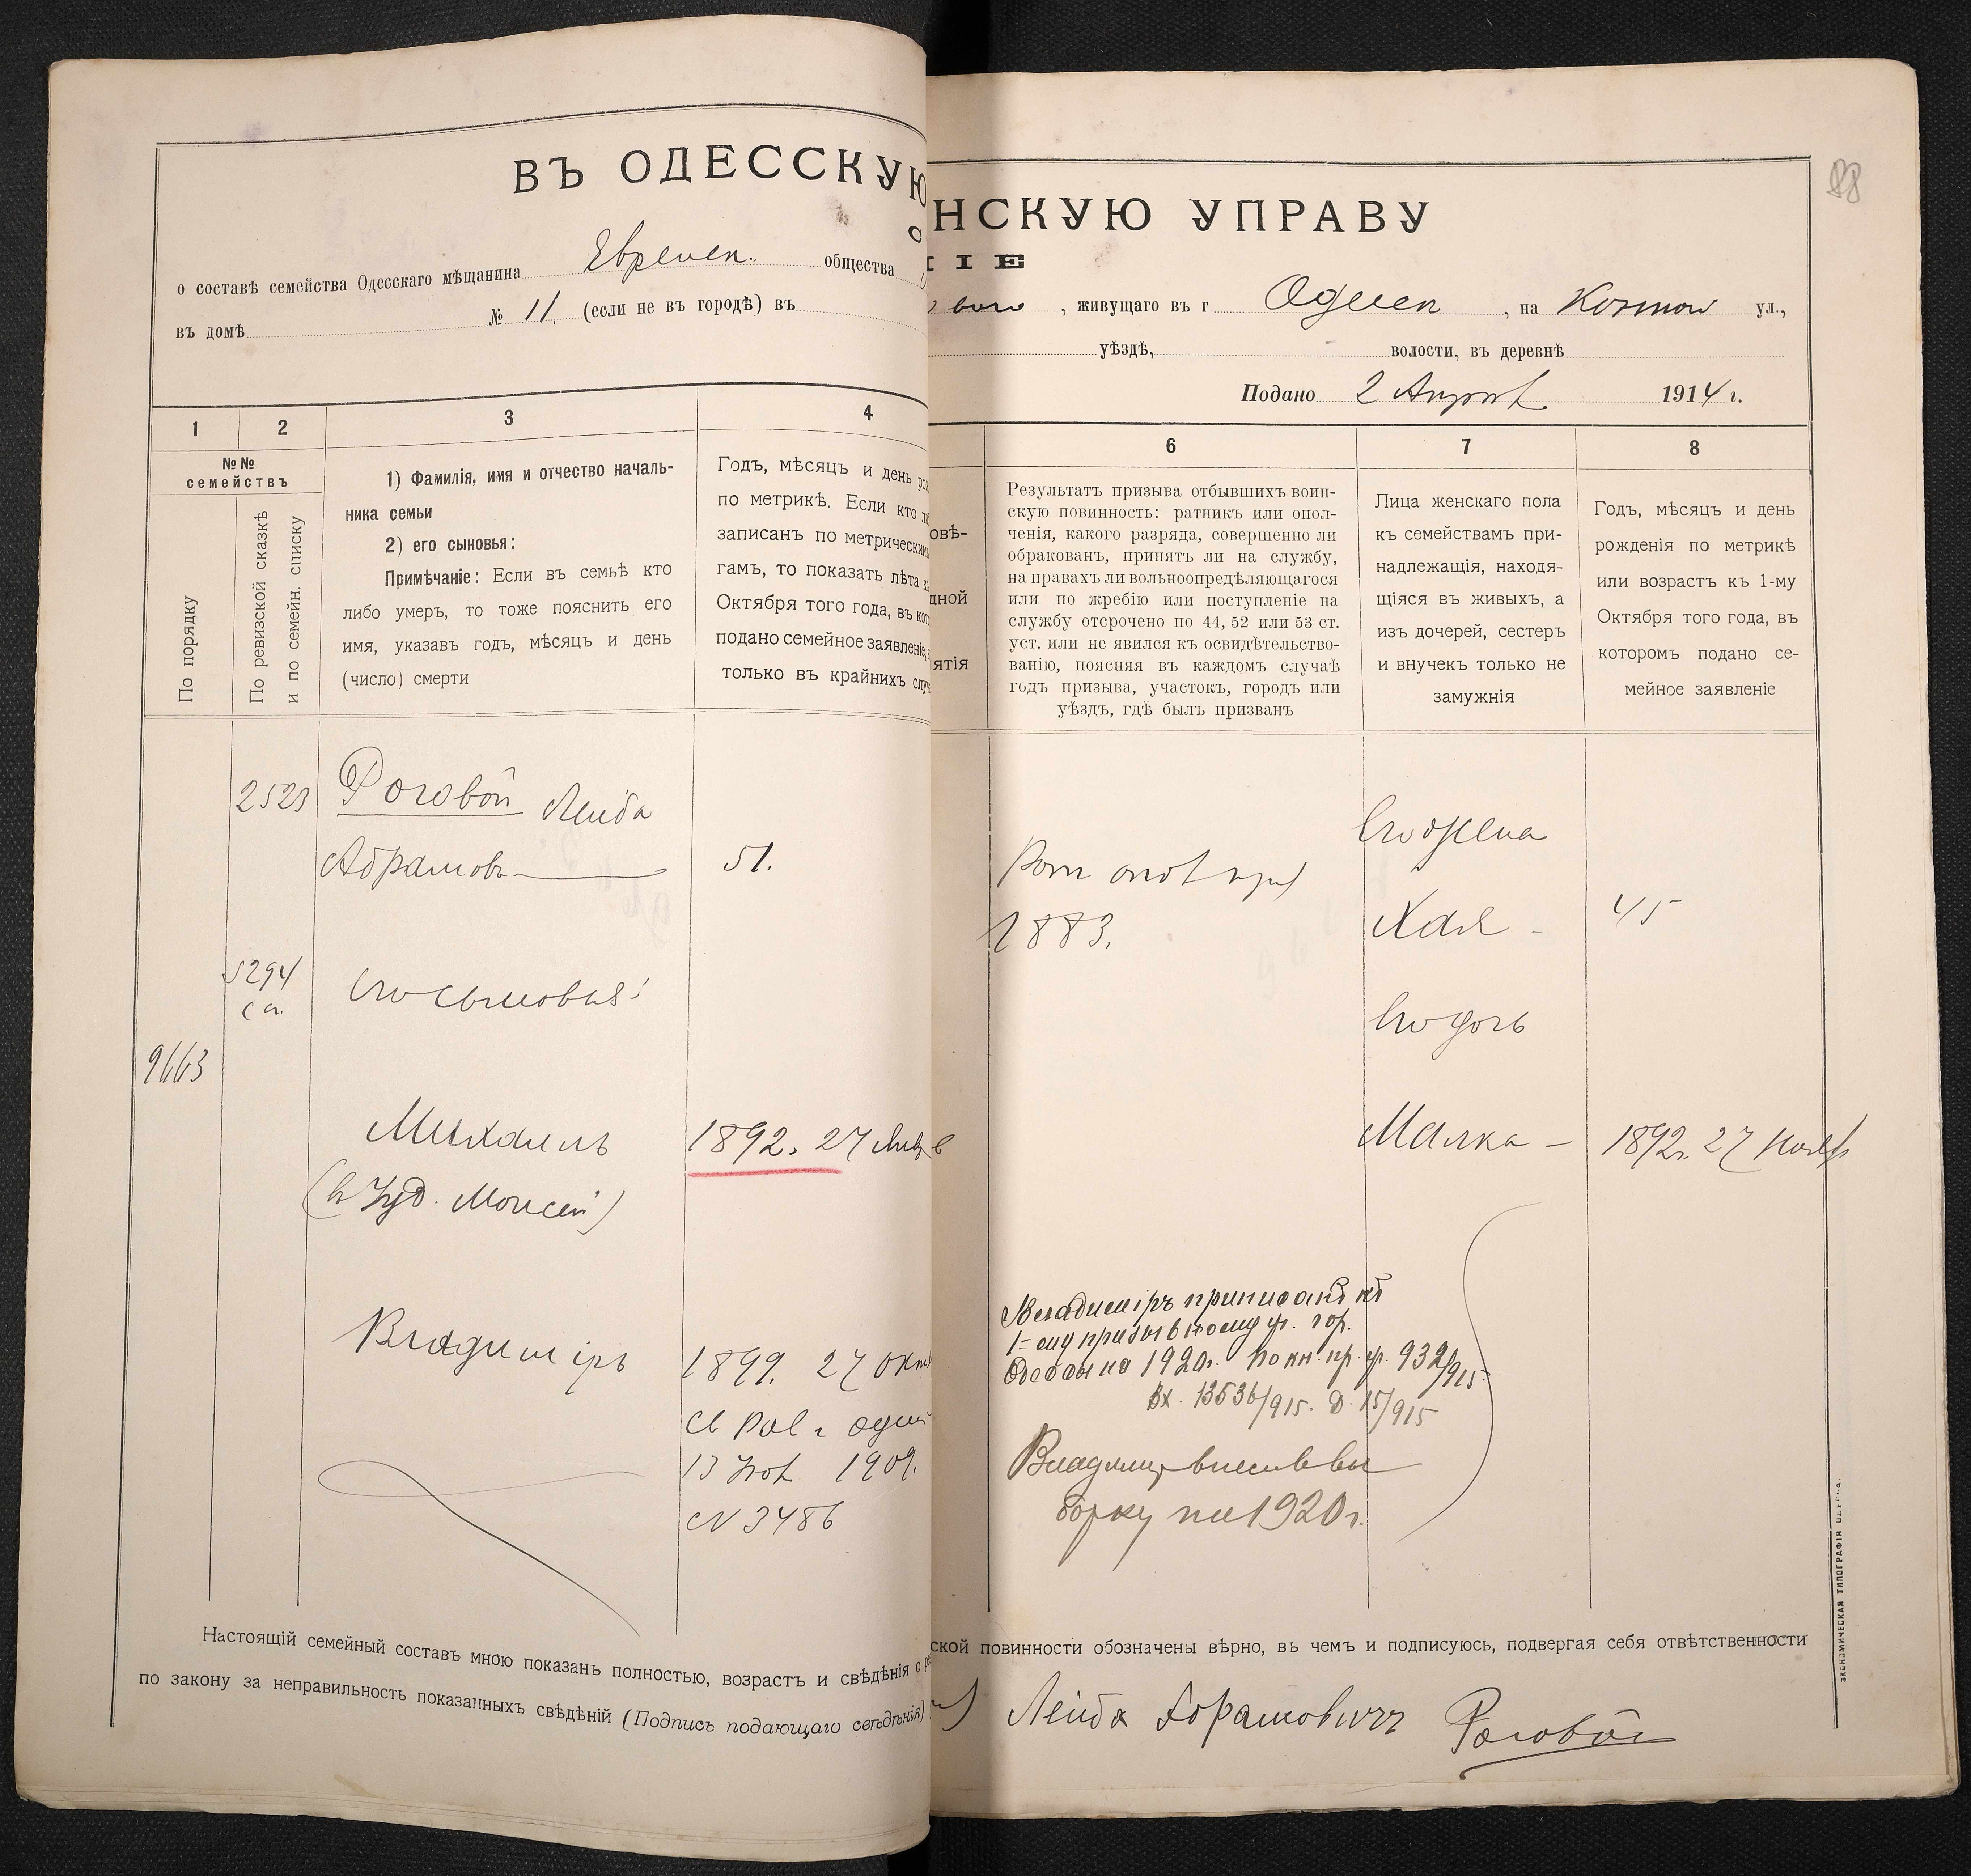 ВЪ ОДЕССКУЮ
о составѣ семейства Одесскаго мѣщанина Евреиск. общества
въ домѣ № 11. (если не въ городѣ) въ
1 2 3 4
№№ семействъ
По порядку
По ревизской сказкѣ
и по семейн. списку
1) Фамилія, имя и отчество началь-
ника семьи
2) его сыновья:
Примѣчаніе: Если въ семьѣ кто
либо умеръ, то тоже пояснить его
имя, указавъ годъ, мѣсяцъ и день
(число) смерти
Годъ, мѣсяцъ и день
по метрикѣ. Если кто
записанъ по метрическим
гамъ, то показать лѣта
Октября того года, въ
подано семейное заявленіе,
только въ крайнихъ
2523 Роговой Лейба
Абрамовъ 51.
5294
сп.
Его сыновья:
9663
Михаилъ 1892. 27
(в Іуд. Моисей)
Владиміръ 1899. 27 Окт
13 1909.
N 3486
Настоящій семейный составъ мною показанъ полностью, возрастъ и свѣдѣнія о
по закону за неправильность показанныхъ свѣдѣній (Подпись подающаго свѣдѣнія)
88
НСКУЮ УПРАВУ
ІІЕ
, живущаго въ г Одессе , на ул.,
уѣздѣ, волости, въ деревнѣ
Подано 2 1914 г.
6 7 8
овѣ-
дной
ятія
Результатъ призыва отбывшихъ воин-
скую повинность: ратникъ или опол-
ченія, какого разряда, совершенно ли
обракованъ, принятъ ли на службу,
на правахъ ли вольноопредѣляющагося
или по жребію или поступленіе на
службу отсрочено по 44, 52 или 53 ст.
уст. или не явился къ освидѣтельство-
ванію, поясняя въ каждомъ случаѣ
годъ призыва, участокъ, городъ или
уѣздъ, гдѣ былъ призванъ
Лица женскаго пола
къ семействамъ при-
надлежащія, находя-
щіяся въ живыхъ, а
изъ дочерей, сестеръ
и внучекъ только не
замужнія
Годъ, мѣсяцъ и день
рожденія по метрикѣ
или возрастъ къ 1-му
Октября того года, въ
которомъ подано се-
мейное заявленіе
Его жена
1883.
Хая - 45
Его дочь
Малка - 1892г. 27 Нояб
Владиміръ приписанъ къ
1-ому призывному уч. гор.
Одессы на 1920г. По кн. пр. уч. 932/915
Вх. 13536/915. Д. 15/915
Владимір внесен в вы
борку на 1920г.
ской повинности обозначены вѣрно, въ чемъ и подписуюсь, подвергая себя отвѣтственности
Лейба Абрамовичъ Роговой
ЭКОНОМИЧЕСКАЯ ТИПОГРАФІЯ ОДЕССА.